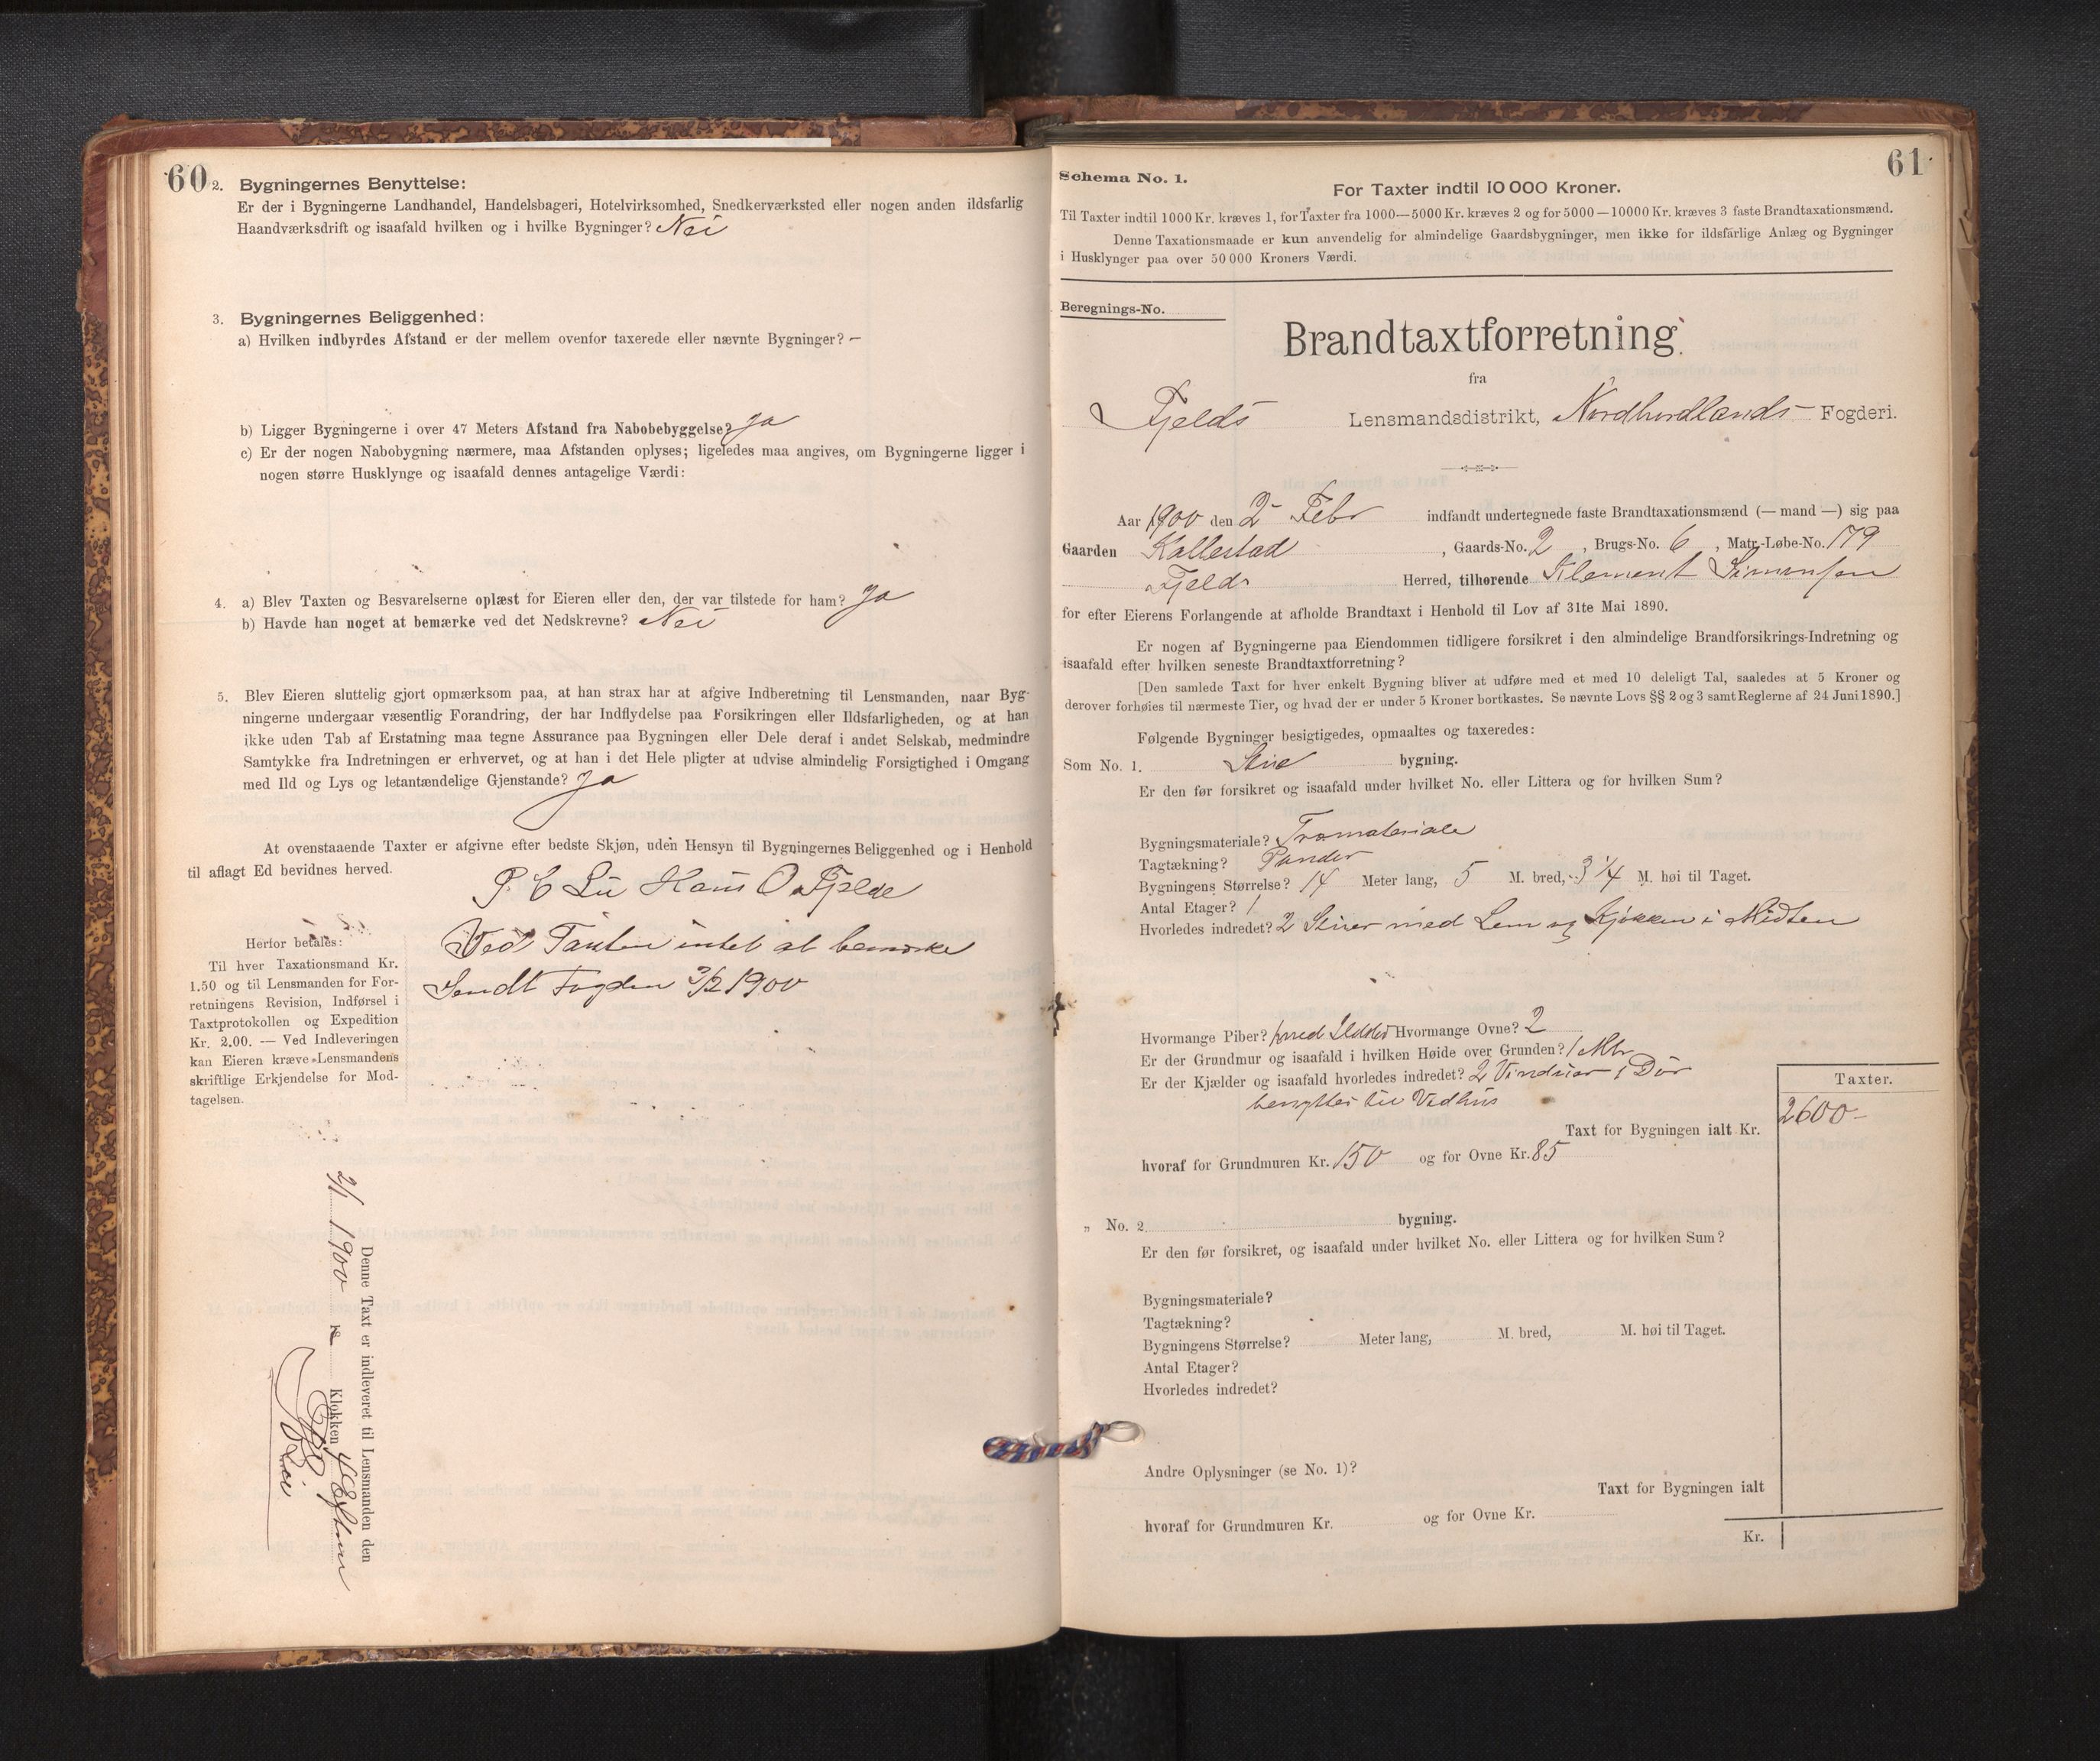 60
2. Bygningernes Benyttelse:
Er der i Bygningerne Landhandel, Handelsbageri, Hotelvirksomhed, Snedkerværksted eller nogen anden ildsfarlig
Haandværksdrift og isaafald hvilken og i hvilke Bygninger? Nei
3. Bygningernes Beliggenhed:
a) Hvilken indbyrdes Afstand er der mellem ovenfor taxerede eller nævnte Bygninger? —
b) Ligger Bygningerne i over 47 Meters Afstand fra Nabobebyggelse? Ja
c) Er der nogen Nabobygning nærmere, maa Afstanden oplyses; ligeledes maa angives, om Bygningerne ligger i
nogen større Husklynge og isaafald dennes antagelige Værdi:
4. a) Blev Taxten og Besvarelserne oplæst for Eieren eller den, der var tilstede for ham? Ja
b) Havde han noget at bemærke ved det Nedskrevne? Nei
5. Blev Eieren sluttelig gjort opmærksom paa, at han strax har at afgive Indberetning til Lensmanden, naar Byg-
ningerne undergaar væsentlig Forandring, der har Indflydelse paa Forsikringen eller Ildsfarligheden, og at han
ikke uden Tab af Erstatning maa tegne Assurance paa Bygningen eller Dele deraf i andet Selskab, medmindre
Samtykke fra Indretningen er erhvervet, og at han i det Hele pligter at udvise almindelig Forsigtighed i Omgang
med Ild og Lys og letantændelige Gjenstande? Ja
At ovenstaaende Taxter er afgivne efter bedste Skjøn, uden Hensyn til Bygningernes Beliggenhed og i Henhold
til aflagt Ed bevidnes herved.
P. C Lie Hans O. Fjelde
Ved Taxten intet at bemærke
Sendt Fogden 3/2 1900
Herfor betales:
Til hver Taxationsmand Kr.
1.50 og til Lensmanden for For-
retningens Revision, Indførsel i
Taxtprotokollen og Expedition
Kr. 2.00. — Ved Indleveringen
kan Eieren kræve Lensmandens
skriftlige Erkjendelse for Mod-
tagelsen.
Denne Taxt er indleveret til Lensmanden den
1900 Klokken 4 Efterm
Lie
61
Schema No. 1.
For Taxter indtil 10 000 Kroner.
Til Taxter indtil 1000 Kr. kræves 1, for Taxter fra 1000—5000 Kr. kræves 2 og for 5000—10000 Kr. kræves 3 faste Brandtaxationsmænd.
Denne Taxationsmaade er kun anvendelig for almindelige Gaardsbygninger, men ikke for ildsfarlige Anlæg og Bygninger
i Husklynger paa over 50 000 Kroners Værdi.
Beregnings-No.
Brandtaxtforretning
fra
Fjelds Lensmandsdistrikt, Nordhordlands Fogderi.
Aar 1900 den 2 Febr indfandt undertegnede faste Brandtaxationsmænd (— mand —) sig paa
Gaarden Kallestad, Gaards-No. 2, Brugs-No. 6, Matr.-Løbe-No. 179
Fjeld Herred, tilhørende Klement Simensen
for efter Eierens Forlangende at afholde Brandtaxt i Henhold til Lov af 31te Mai 1890.
Er nogen af Bygningerne paa Eiendommen tidligere forsikret i den almindelige Brandforsikrings-Indretning og
isaafald efter hvilken seneste Brandtaxtforretning?
[Den samlede Taxt for hver enkelt Bygning bliver at udføre med et med 10 deleligt Tal, saaledes at 5 Kroner og
derover forhøies til nærmeste Tier, og hvad der er under 5 Kroner bortkastes. Se nævnte Lovs §§ 2 og 3 samt Reglerne af 24 Juni 1890.]
Følgende Bygninger besigtigedes, opmaaltes og taxeredes:
Som No. 1. Stue bygning.
Er den før forsikret og isaafald under hvilket No. eller Littera og for hvilken Sum?
Bygningsmateriale? Træmateriale
Tagtækning? Pander
Bygningens Størrelse? 14 Meter lang, 5 M. bred, 3 1/4 M. høi til Taget.
Antal Etager? 1
Hvorledes indredet? 2 Stuer med Lem og Kjøkken i Midten
Hvormange Piber? 1 med Ildsted Hvormange Ovne? 2
Er der Grundmur og isaafald i hvilken Høide over Grunden? 1 Mtr
Er der Kjælder og isaafald hvorledes indredet? 2 Vinduer 1 Dør
benyttes til Vedhus
Taxter.
2600-
Taxt for Bygningen ialt Kr.
hvoraf for Grundmuren Kr. 150 og for Ovne Kr. 85
„ No. 2. bygning.
Er den før forsikret, og isaafald under hvilket No. eller Littera og for hvilken Sum?
Bygningsmateriale?
Tagtækning?
Bygningens Størrelse? Meter lang, M. bred, M. høi til Taget.
Antal Etager?
Hvorledes indredet?
Andre Oplysninger (se No. 1)?
Taxt for Bygningen ialt
hvoraf for Grundmuren Kr. og for Ovne Kr.
Kr.